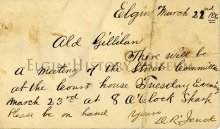 Elgin March 22nd
Ald Gillilan
There will be
a meeting of the Street Committee
at the Court house Tuesday Evening
March 23rd at 8 O'Clock Sharp
Please be on hand
Yours